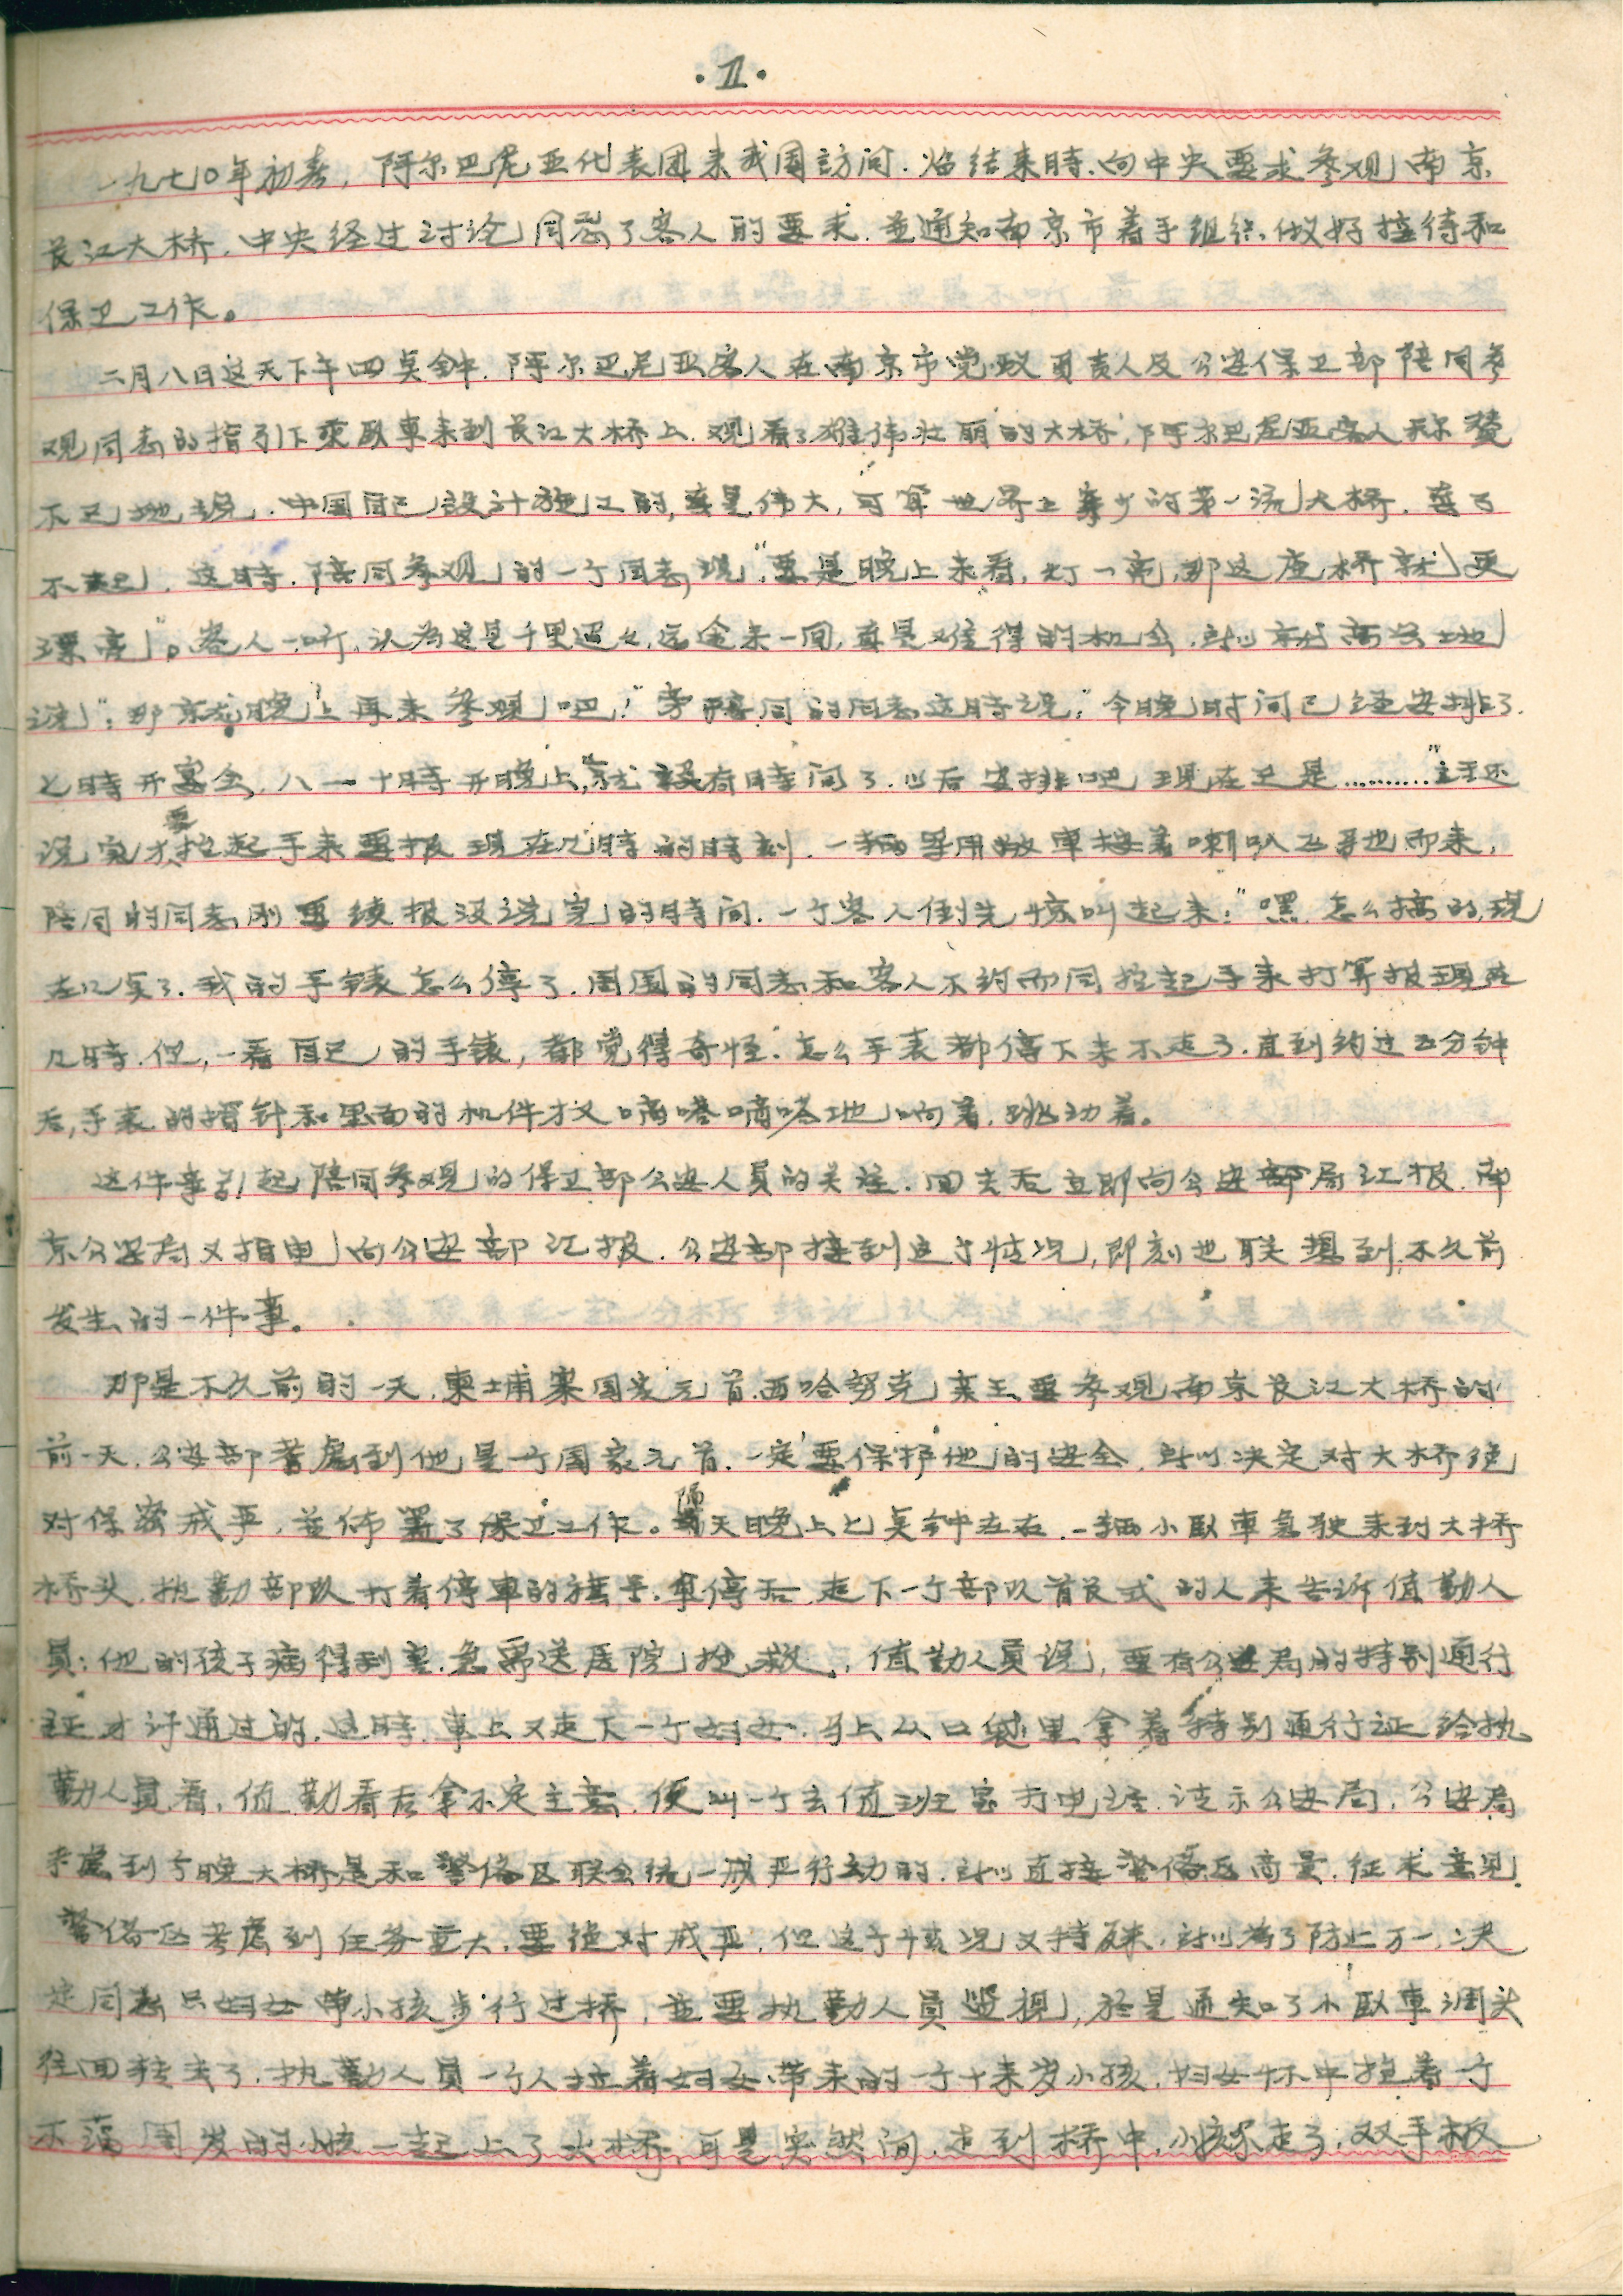 ·II·
一九七〇年初春，阿尔巴尼亚代表团来我国訪问．临结束時．向中央要求参观南京
長江大桥．中央经过讨论同意了客人的要求．並通知南京市着手组织．做好接待和
保卫工作。
二月八日这天下午四点钟．阿尔巴尼亚客人在南京市党政負责人及公安保卫部陪同参
观同志的指引下乘臥車来到長江大桥上．观看了雄伟壮丽的大桥，阿尔巴尼亚客人称赞
不已地说．中国自己設计施工的，真是伟大，可算世界上象少的第一流大桥．真了
不起．这時．陪同参观的一个同志说“要是晚上来看，灯一亮，那这座桥就更
漂亮”。客人一听，认为这是千里迢々，远途来一回，真是难得的机会．所以就高兴地
说“：那就晚上再来参观吧！”旁陪同的同志这時说：“今晚时间已经安排了．
七時开宴会，八一十時开晚上，就没有時间了．以后安排吧现在已是…………”話还
说完才要抬起手来要报现在几時的時刻．一辆军用救車按着喇叭飞驰也而来，
陪同的同志刚要续报没说完的時间．一个客人倒先惊叫起来：“嘿．怎么搞的，现
在几点了．我的手錶怎么停了．周围的同志和客人不约而同抬起手来打算报现在
几時．但，一看自己的手錶，都觉得奇怪．怎么手表都停下来不走了．直到约过五分钟
后，手表的指针和里面的机件才又嘀嗒嘀嗒地响着．跳动着。
这件事引起陪同参观的保卫部公安人员的关注．回去后立即向公安部局汇报．南
京公安局又拍电向公安部汇报．公安部接到这个情况，即刻也联想到不久前
发生的一件事。
那是不久前的一天．柬埔寨国家元首．西哈努克亲王要参观南京長江大桥的
前一天．公安部考慮到他是一个国家元首．一定要保护他的安全．所以决定对大桥绝
对保密戒严，並佈署了保卫工作。隔天晚上七点钟左右．一辆小臥車急驶来到大桥
桥头．执勤部队打着停車的旗号．車停后．走下一个部队首長式的人来告诉值勤人
員：他的孩子病得利害．急需送医院抢救．值勤人員说，要有公安局的特别通行
証才许通过的．这時．車上又走下一个妇女．马上从口袋里拿着特别通行证给执
勤人員看．值勤看后拿不定主意．便叫一个去值班室打电话．请示公安局．公安局
考慮到今晚大桥是和警备区联合统一戒严行动的．所以直接警备区商量．征求意见．
警备区考慮到任务重大．要绝对戒严．但这个情况又特殊．所以为了防止万一．决
定同意只妇女带小孩步行过桥，並要执勤人員监視，於是通知了小臥車调头
往回转去了．执勤人員一个人拉着妇女带来的一个十来岁小孩．妇女怀中抱着一个
不满周岁的小孩一起上了大桥．可是突然间．走到桥中，小孩不走了，双手板